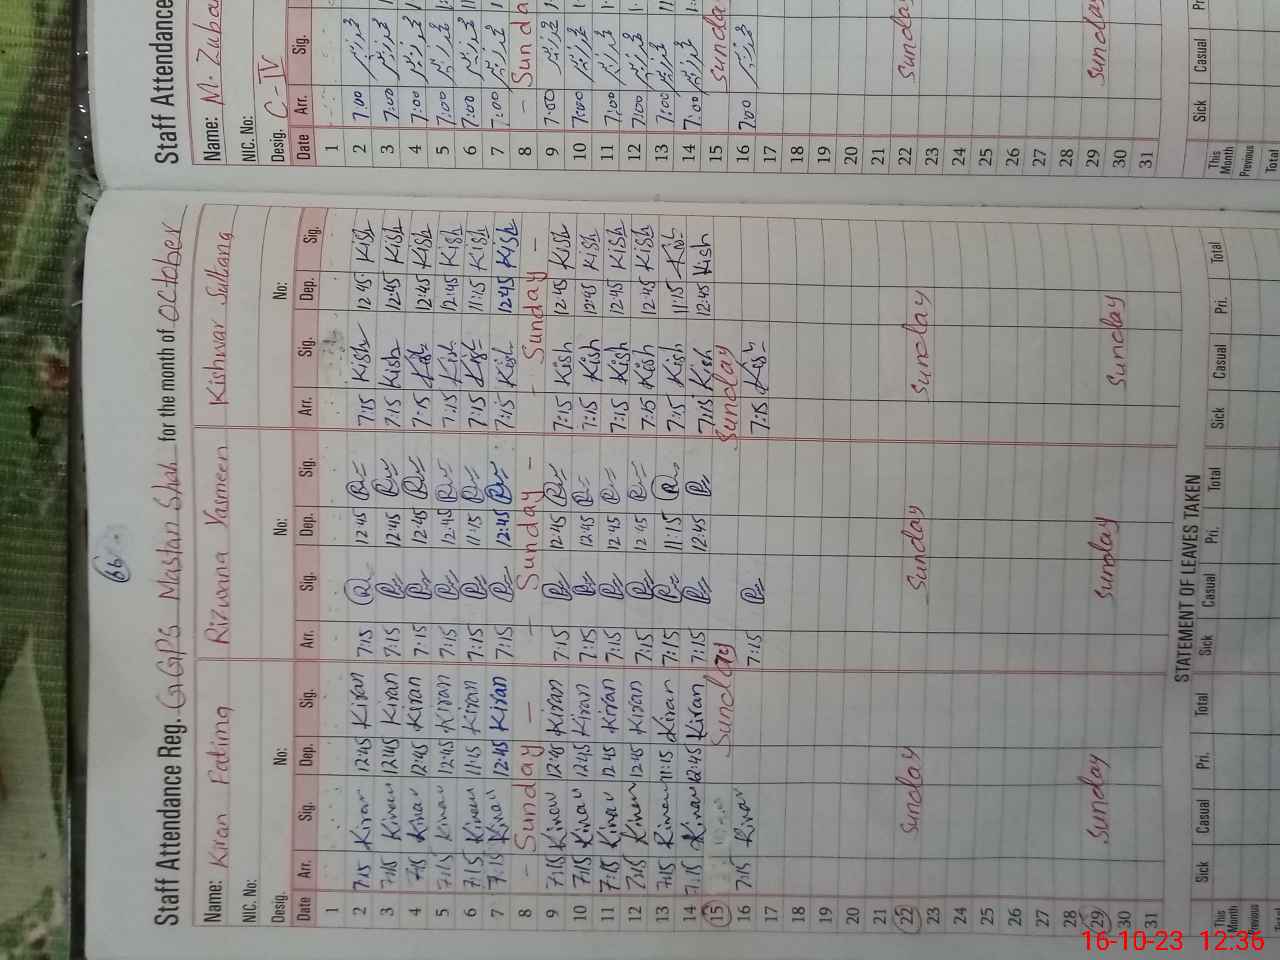 66
Staff Attendance Reg. GGPS Mastan Shah for the month of October
Name: Kiran Fatima Rizwana Yasmeen Kishwar Sultana
NIC. No: No: No: No:
Desig.
Date Arr. Sig. Dep. Sig. Arr. Sig. Dep. Sig. Arr. Sig. Dep. Sig.
1
2 7:15 Kiran 12:45 Kiran 7:15 12:45 7:15 Kish 12:45 Kish
3 7:15 Kiran 12:45 Kiran 7:15 12:45 7:15 Kish 12:45 Kish
4 7:15 Kiran 12:45 Kiran 7:15 12:45 7:15 Kish 12:45 Kish
5 7:15 Kiran 12:45 Kiran 7:15 12:45 7:15 Kish 12:45 Kish
6 7:15 Kiran 11:15 Kiran 7:15 11:15 7:15 Kish 11:15 Kish
7 7:15 Kiran 12:45 Kiran 7:15 12:45 7:15 Kish 12:45 Kish
8 - Sunday - - Sunday - - Sunday -
9 7:15 Kiran 12:45 Kiran 7:15 12:45 7:15 Kish 12:45 Kish
10 7:15 Kiran 12:45 Kiran 7:15 12:45 7:15 Kish 12:45 Kish
11 7:15 Kiran 12:45 Kiran 7:15 12:45 7:15 Kish 12:45 Kish
12 7:15 Kiran 12:45 Kiran 7:15 12:45 7:15 Kish 12:45 Kish
13 7:15 Kiran 11:15 Kiran 7:15 11:15 7:15 Kish 11:15 Kish
14 7:15 Kiran 12:45 Kiran 7:15 12:45 7:15 Kish 12:45 Kish
15 Sunday Sunday
16 7:15 Kiran 7:15 7:15 Kish
17
18
19
20
21
22 Sunday Sunday Sunday
23
24
25
26
27
28
29 Sunday Sunday Sunday
30
31
STATEMENT OF LEAVES TAKEN
Sick Casual Pri. Total Sick Casual Pri. Total Sick Casual Pri. Total
This Month
Previous
Total
Staff Attendance
Name: M. Zuba
NIC. No:
Desig. C-IV
Date Arr. Sig.
1
2 7:00
3 7:00
4 7:00
5 7:00
6 7:00
7 7:00
8 - Sunda
9 7:00
10 7:00
11 7:00
12 7:00
13 7:00
14 7:00
15 Sunda
16 7:00
17
18
19
20
21
22 Sunday
23
24
25
26
27
28
29 Sunday
30
31
Sick Casual Pr
This Month
Previous
Total
16-10-23 12:36